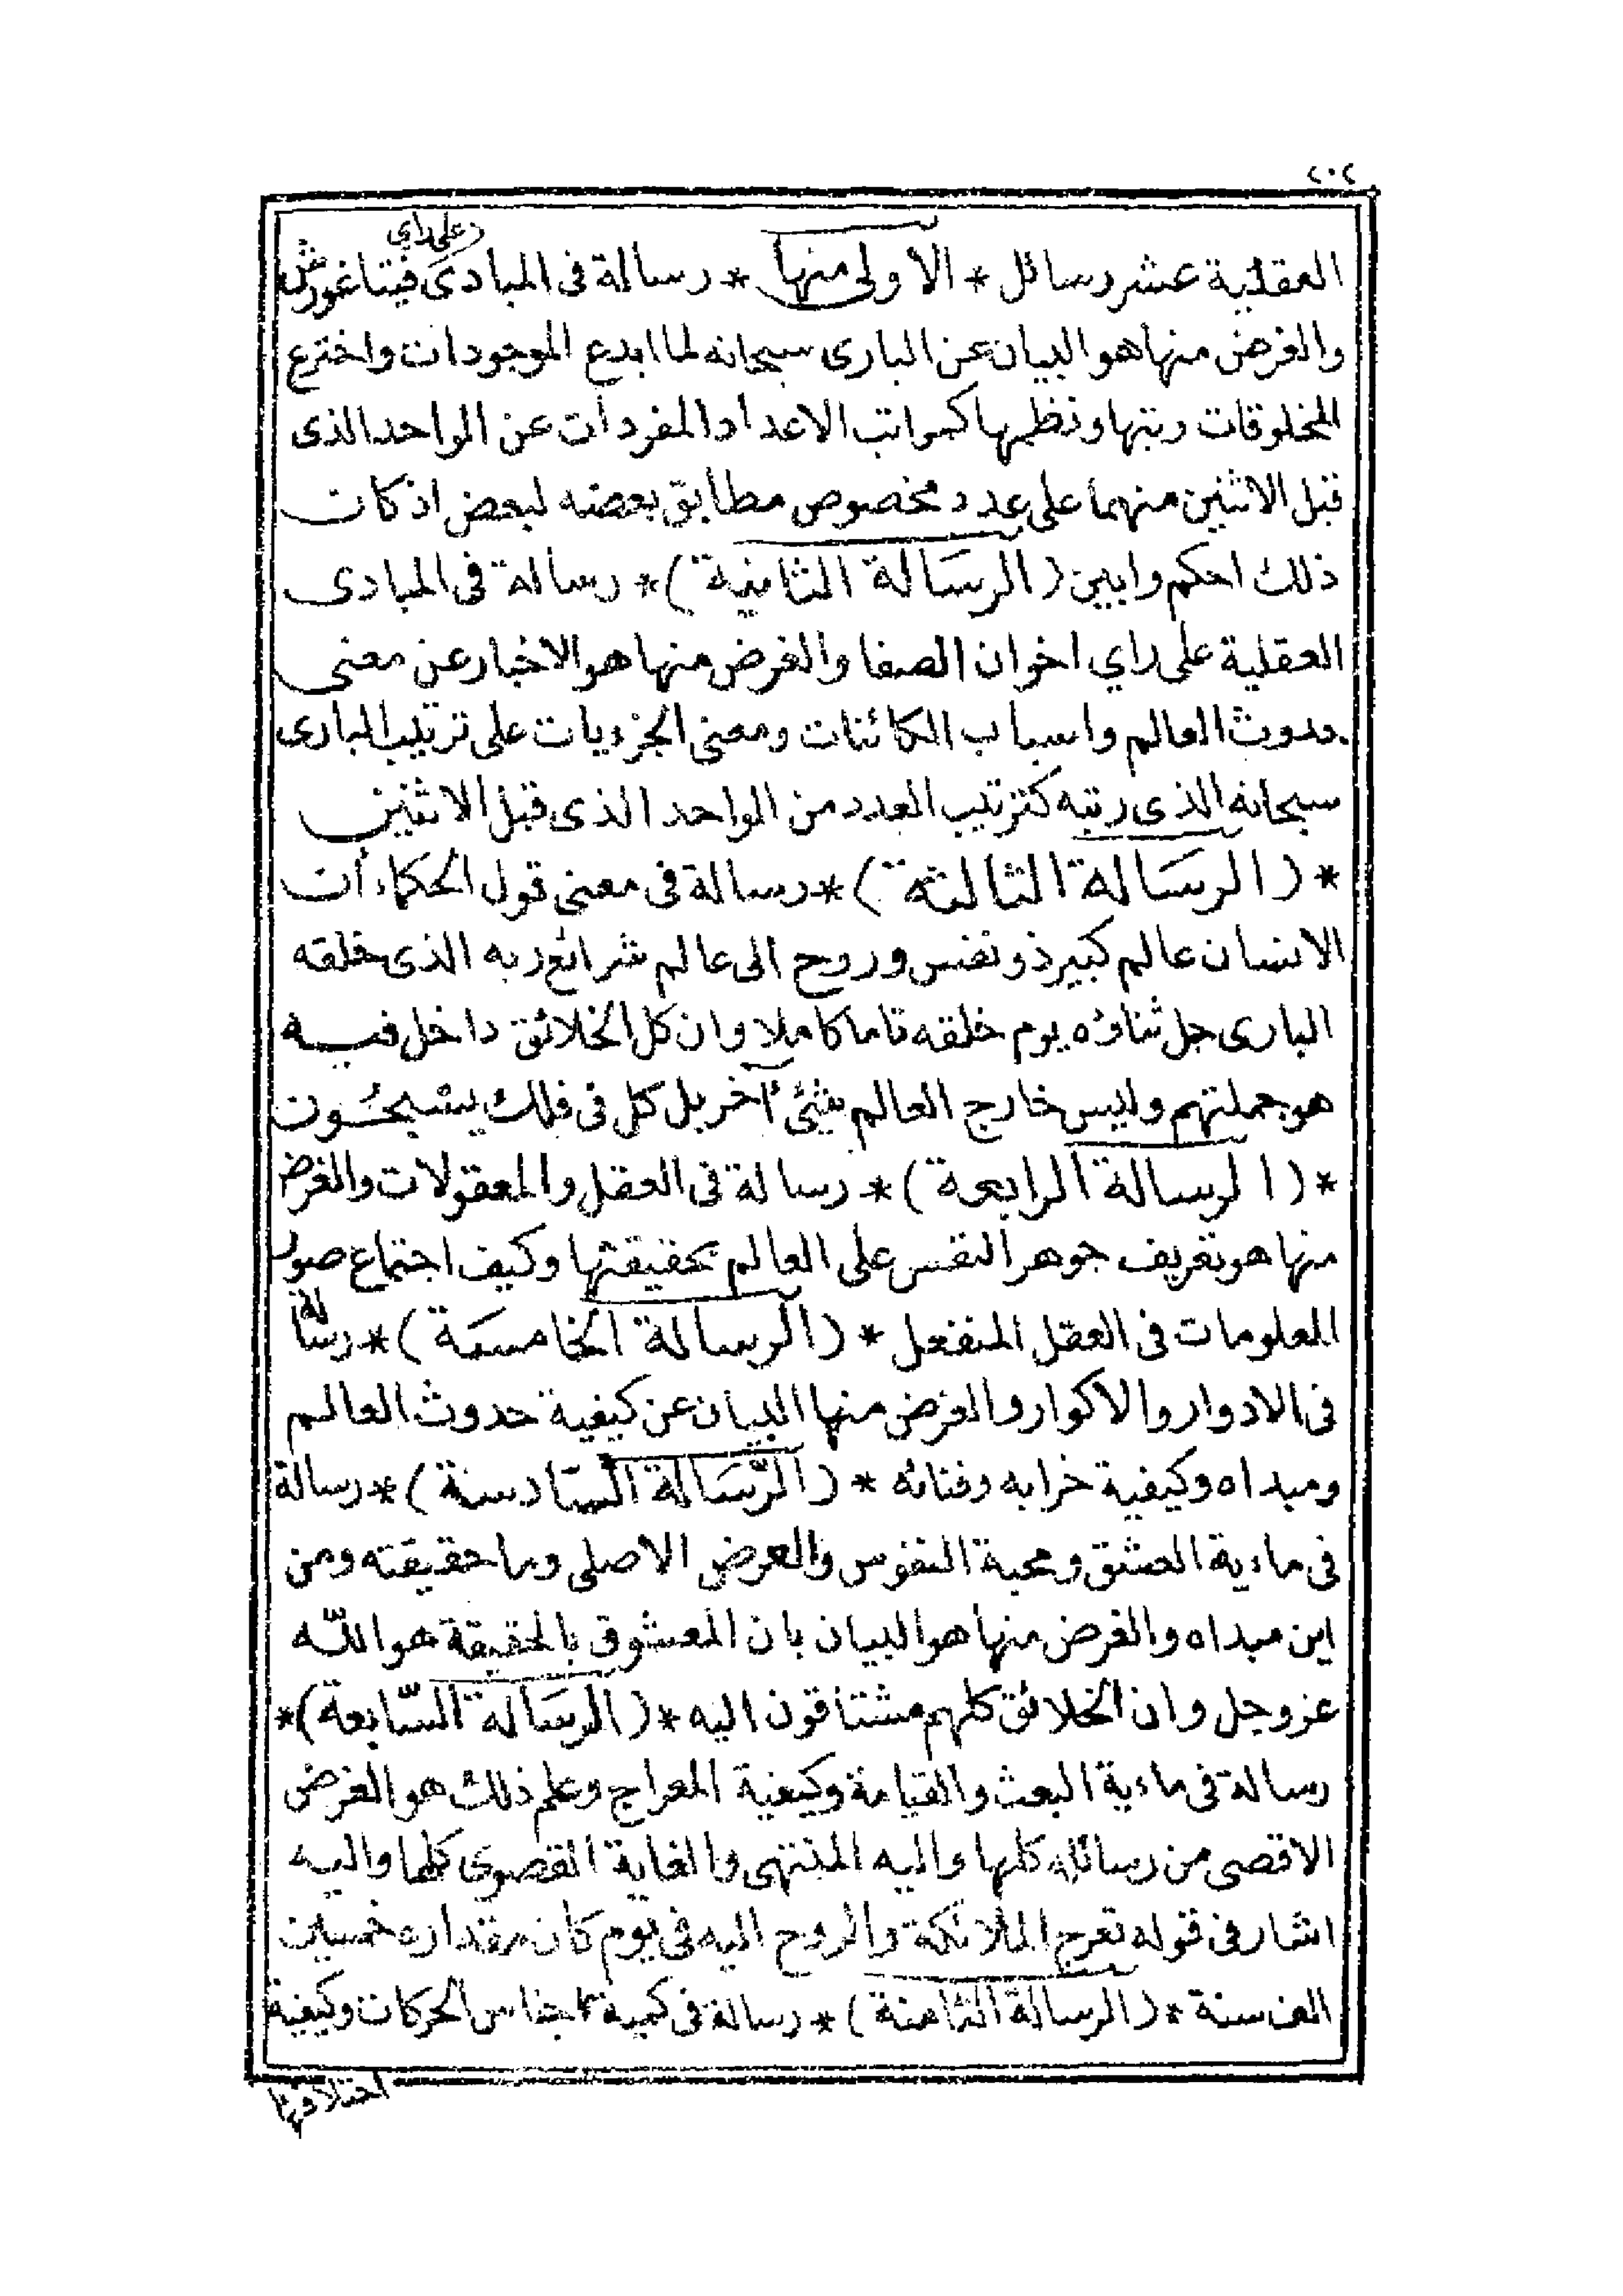 ٢٠٢
على راي
العقلية عشر رسائل * الاولى منها * رسالة فى المبادى فيثاغورش
والغرض منها هو البيان عن البارى سبحانه لما ابدع الموجودات واخترع
المخلوقات رتبها ونظمها كمراتب الاعداد المفردات عن الواحد الذى
قبل الاثنين منهما على عدد مخصوص مطابق بعضه لبعض اذ كان
ذلك احكم وابين (الرسَالة الثانية) * رسالة فى المبادى
العقلية على راي اخوان الصفا والغرض منها هو الاخبار عن معنى
حدوث العالم واسباب الكائنات ومعنى الجزويات على ترتيب البارى
سبحانه الذى رتبه كترتيب العدد من الواحد الذى قبل الاثنين
* (الرسَالة الثالثة) * رسالة فى معنى قول الحكماء أن
الانسان عالم كبير ذو نفس وروح الى عالم شرائع ربه الذى خلقه
البارى جل ثناؤه يوم خلقه تاما كاملا وان كل الخلائق داخل فيه
هو جملتهم وليس خارج العالم شئ آخر بل كل فى فلك يسبحُون
* (الرسالة الرابعة) * رسالة فى العقل والمعقولات والغرض
منها هو تعريف جوهر النفس على العالم بحقيقتها وكيف اجتماع صور
المعلومات فى العقل المنفعل * (الرسالة الخامسَة) * رسالة
فى الادوار والاكوار والغرض منها البيان عن كيفية حدوث العالم
ومبداه وكيفية خرابه وفنائه * (الرّسَالة السّادسة) * رسالة
فى ماءية العشق ومحبة النفوس والعرض الاصلى وما حقيقته ومن
اين مبداه والغرض منها هو البيان بان المعشوق بالحقيقة هو اللّه
عز وجل وان الخلائق كلهم مشتاقون اليه * (الرسَالة السّابعة) *
رسالة فى ماءية البعث والقيامة وكيفية المعراج وعلم ذلك هو الغرض
الاقصى من رسائله كلها واليه المنتهى والغاية القصوى كلها واليه
اشار فى قوله تعرج الملائكة والروح اليه فى يوم كان مقداره خمسين
الف سنة * (الرسالة الثامنة) * رسالة فى كمية اجناس الحركات وكيفية
اختلافها